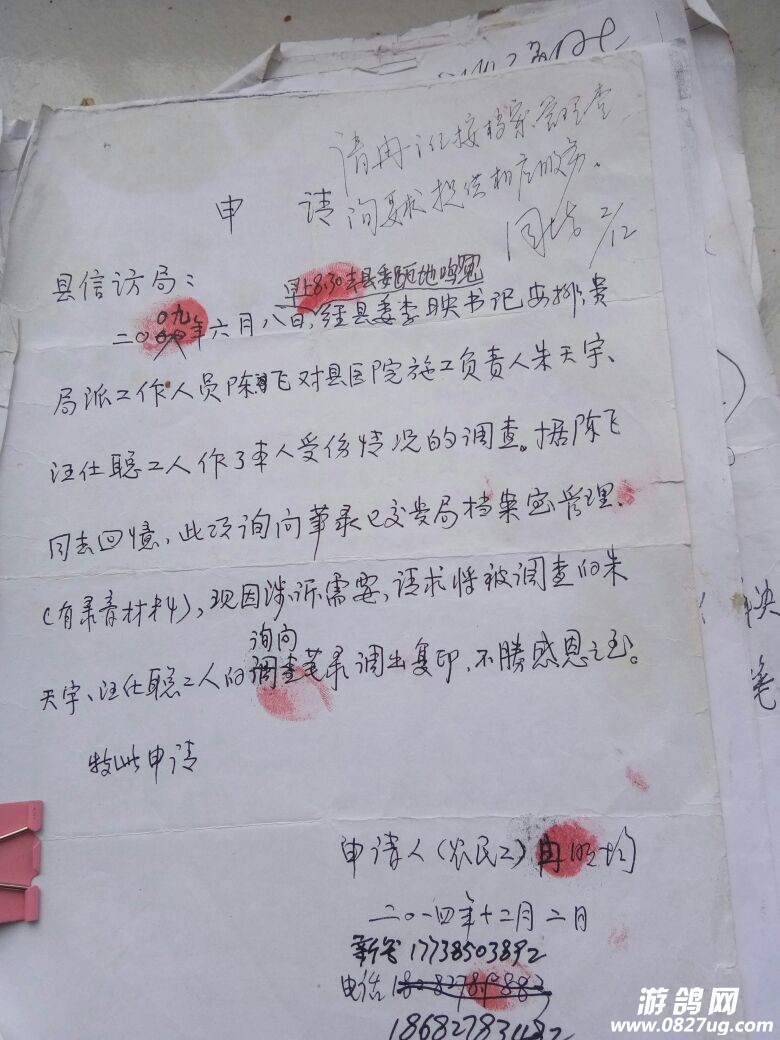 请冉主任按档案管理查
询要求提供相应服务。
2/12
申 请
县信访局：
早上8:30去县委跪地鸣冤
二〇〇九年六月八日，经县委李映书记安排，贵
局派工作人员陈飞对县医院施工负责人朱天宇、
汪仕聪二人作了本人受伤情况的调查。据陈飞
同志回憶，此项询问筆录已交贵局档案室管理、
（有录音材料），现因涉诉需要，请求将被调查的朱
天宇、汪仕聪二人的询问筆录调出复印，不勝感恩之至。
特此申请
申请人（农民工）冉
二〇一四年十二月二日
新号 17738503892
电话
游鸽网
www.0827ug.com